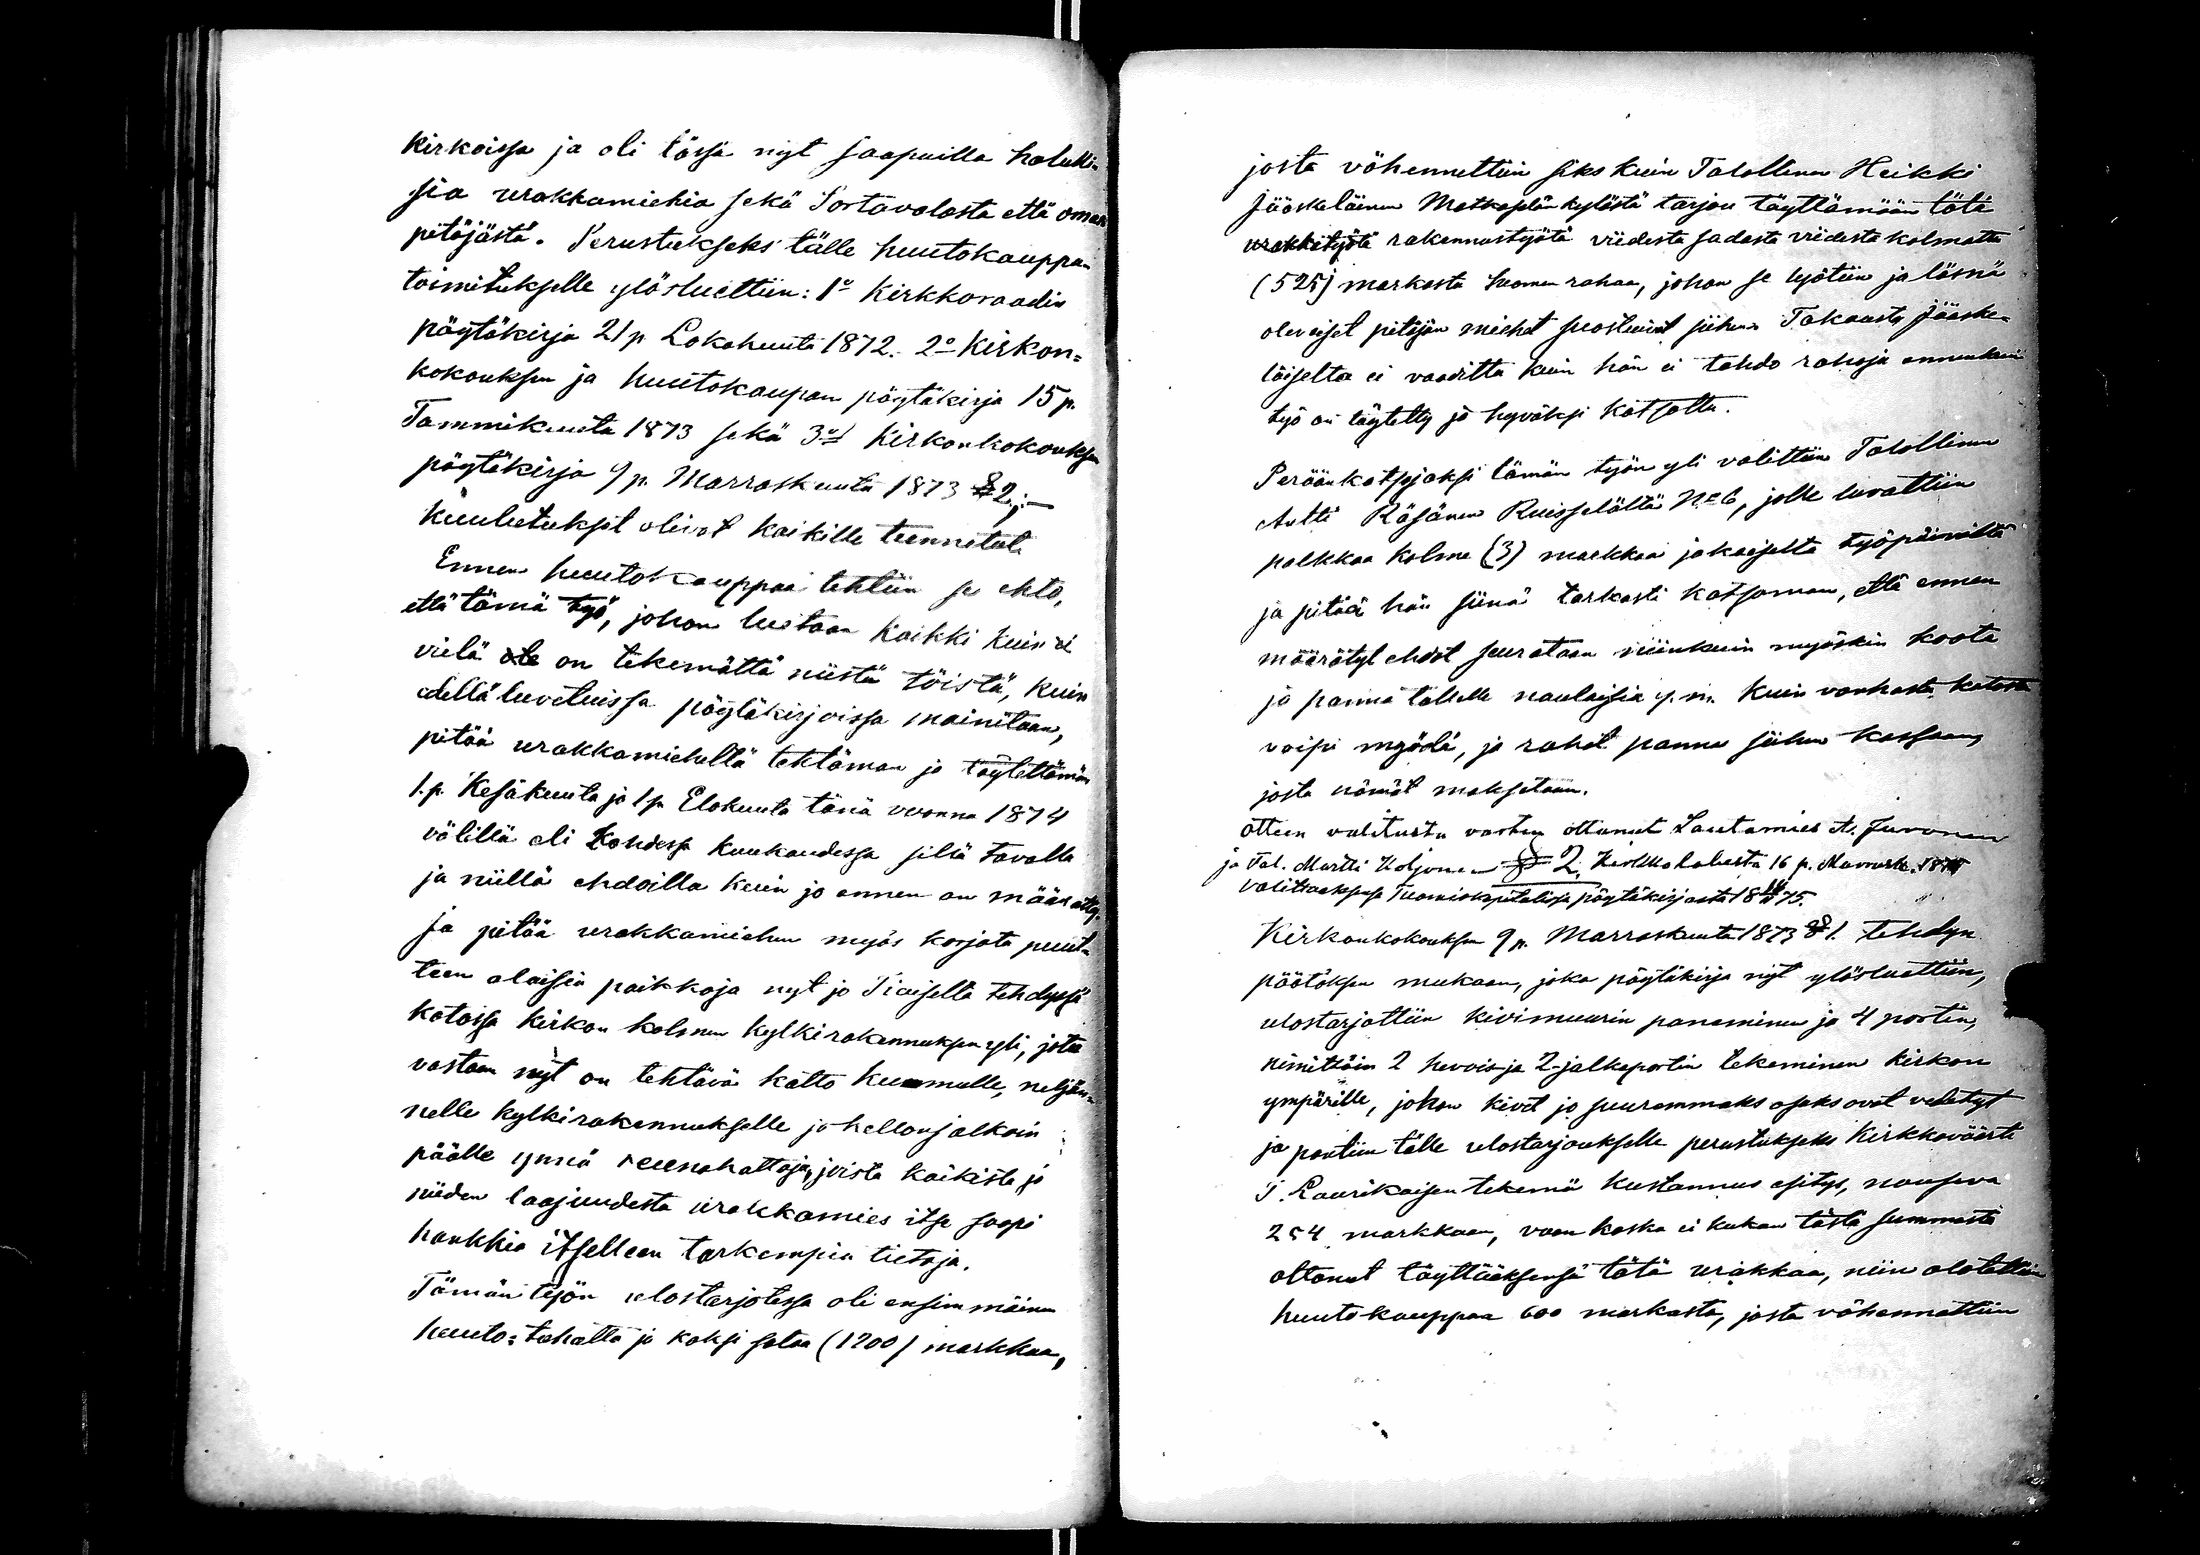 kirkoissa ja oli tässä nyt saapuilla halukki=
sia urakkamiehia sekä Sortavalasta että oman
pitäjästä. Perustukseks tälle huutokauppan
toimitukselle ylösluettiin: 1o Kirkkoraadin
pöytäkirja 21 p. Lokakuuta 1872. 2o Kirkon=
kokouksen ja huutokaupan pöytäkirja 15 p.
Tammikuuta 1873 sekä 3o Kirkonkokouksen
pöytäkirja 9 p. Marraskuuta 1873 § 2;—
Kuulutukset olivat kaikille teennetut
Ennen huutokauppaa tehtiin se ehto,
että tämä työ, johon luetaan kaikki kuin ei
vielä ole on tekemättä niistä töistä, kuin
edellä luetuissa pöytäkirjoissa mainitaan,
pitää urakkamieheltä tehtämän ja täytettämän
1. p. Kesäkuuta ja 1 p. Elokuuta tänä vuonna 1874
välillä eli kahdessa kuukaudessa sillä tavalla
ja niillä ehdoilla kuin jo ennen on määrätty.
Ja pitää urakkamiehen myös korjata puut=
teen alaisia paikkoja nyt jo Tiaiselta tehdyssä
katossa kirkon kolmen kylkirakennuksen yli, jota
vastaan nyt on tehtävä katto kuumulle, neljän=
nelle kylkirakennukselle ja kellonjalkain
päälle ynnä reunahattoja, joista kaikista ja
niiden laajuudesta urakkamies itse saapi
hankkia itselleen tarkempia tietoja.
Tämän työn ulostarjotessa oli ensimmäinen
huuto= tuhatta ja kaksi sataa (1200) markkaa,
josta vähennettiin siks kuin Talollinen Heikki
Jääskeläinen Matkaselän kylästä tarjou täyttämään tätä
urakkatyötä rakennustyötä viidestä sadasta viidestä kolmatta
(525) markasta Suomen rahaa, johon se lyötiin ja läsnä
olevaiset pitäjän miehet suostuivat siihen. Takausta Jääske=
läiseltä ei vaadittu kuin hän ei tahdo rahoja ennenkuin
työ on täytetty ja hyväksi katsottu.
Peräänkatsojaksi tämän työn yli valittiin Talollinen
Antti Räsänen Ruisselältä No 6, jolle luvattiin
palkkaa kolme (3) markkaa jokaiselta työpäivältä
ja pitää hän siinä tarkasti katsoman, että ennen
määrätyt ehdot seurataan niinkuin myöskin koota
ja panna tallelle naulaisia y. m. kuin vanhasta katosta
voipi myödä, ja rahat panna siihen kassaan,
josta nämät maksetaan.
otteen valitusta varten ottanut Lautamies A. Juvonen
ja Tal. Martti Koljonen § 2. Kirkkohalusta 16 p. Marrask.
valituksesta Tuomiokapitelissa pöytäkirjasta
Kirkonkokouksen 9 p. Marraskuuta 1873 § 1. tehdyn
päätöksen mukaan, joka pöytäkirja nyt ylösluettiin,
ulostarjottiin kivimuurin panaminen ja 4 portin,
nimittäin 2 hevois- ja 2 jalkaportin tekeminen kirkon
ympärille, johon kivet jo suuremmaks osaks ovat vedetyt
ja pantiin tälle ulostarjoukselle perustukseks Kirkkoväärti
T. Laurikaisen tekemä kustannus esitys, nouseva
254 markkaan, vaan koska ei kukaan tästä summasta
ottanut täyttääksensä tätä urakkaa, niin alotettiin
huutokauppaa 600 markasta, josta vähennettiin